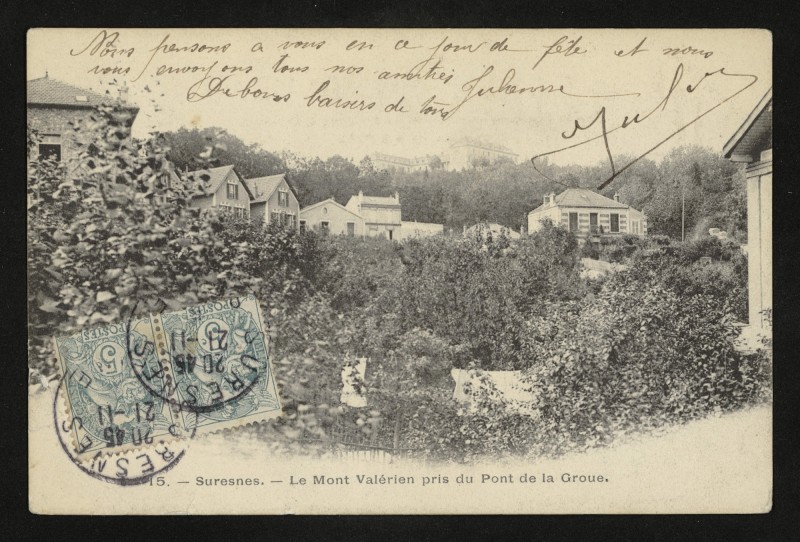 Nous pensons a vous en ce jour de fête et nous
vous envoyons tous nos amitiés
De bons baisers de tous
Jul
POSTES
5c
POSTES
5c
SURESNES
20 45
21-11
SURESNES
20 45
21-11
15. — Suresnes. — Le Mont Valérien pris du Pont de la Groue.